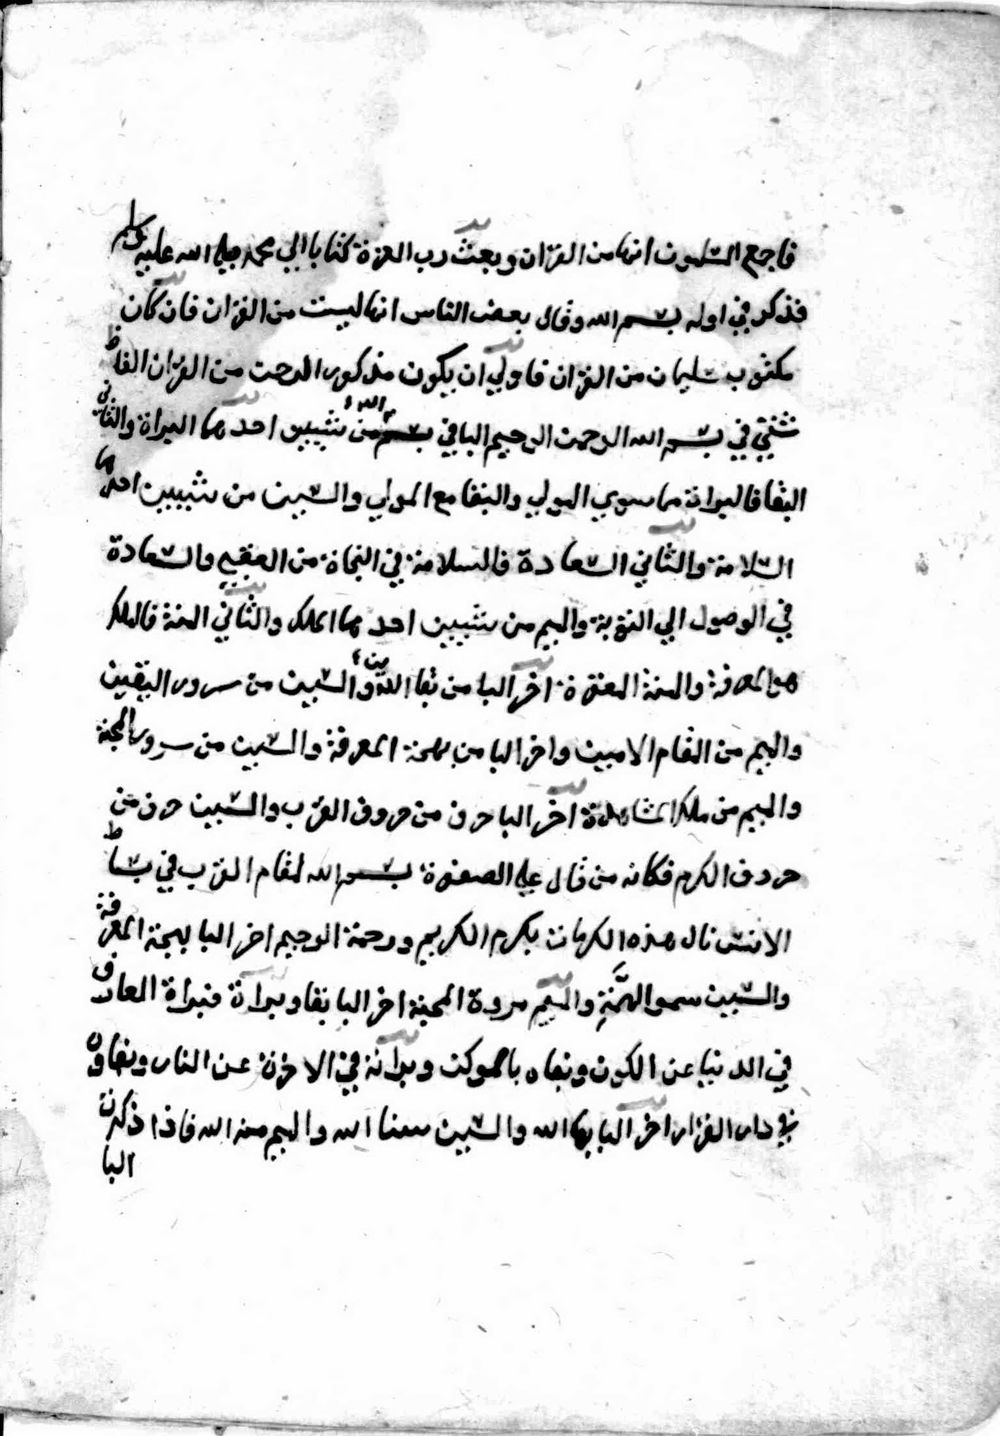 فاجمع المسلمون انها من القران وبعث رب العزة كتابا الي محمد صلي الله عليه وسلم
فذكر في اوله بسم الله وقال بعض الناس انها ليست من القران فان كان
مكتوب سليمان من القران فاولي ان يكون مذكور الرحمن من القران الفاظ
شتي في بسم الله الرحمن الرحيم البا في بسم الله من شيين احدهما البراة والثاني
البقا فالبراة مما سوي المولي والبقا مع المولي والسين من شيين احدهما
السلامة والثاني السعادة فالسلامة في النجاة من القبيح والسعادة
في الوصول الي التوبة والميم من شيين احدهما الملك والثاني المنة فالملك
هو المعرفة والمنة المغفرة اخر البا من بقا الدين والسين من سرور اليقين
والميم من المقام الامين واخر البا من بهجة المعرفة والسين من سرور المحبة
والميم من ملك المشاهدة اخر البا حرف من حروف القرب والسين حرف من
حروف الكرم فكانه من قال علي الصفوة بسم الله لمقام القرب في بساط
الانس نال هذه الكرمات بكرم الكريم ورحمة الرحيم اخر البا بهجة المعرفة
والسين سمو الهمة والميم مروة المحبة اخر البا بقا وبراة فبراة العارف
في الدنيا عن الكون وبقاه بالمكون وبراته في الاخرة عن النار وبقاوه
في دار القرار اخر البا بها الله والسين سنا الله والميم منه الله فاذا ذكرت
البا